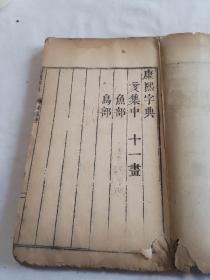 康熙字典
亥集中 十一畫
魚部
鳥部